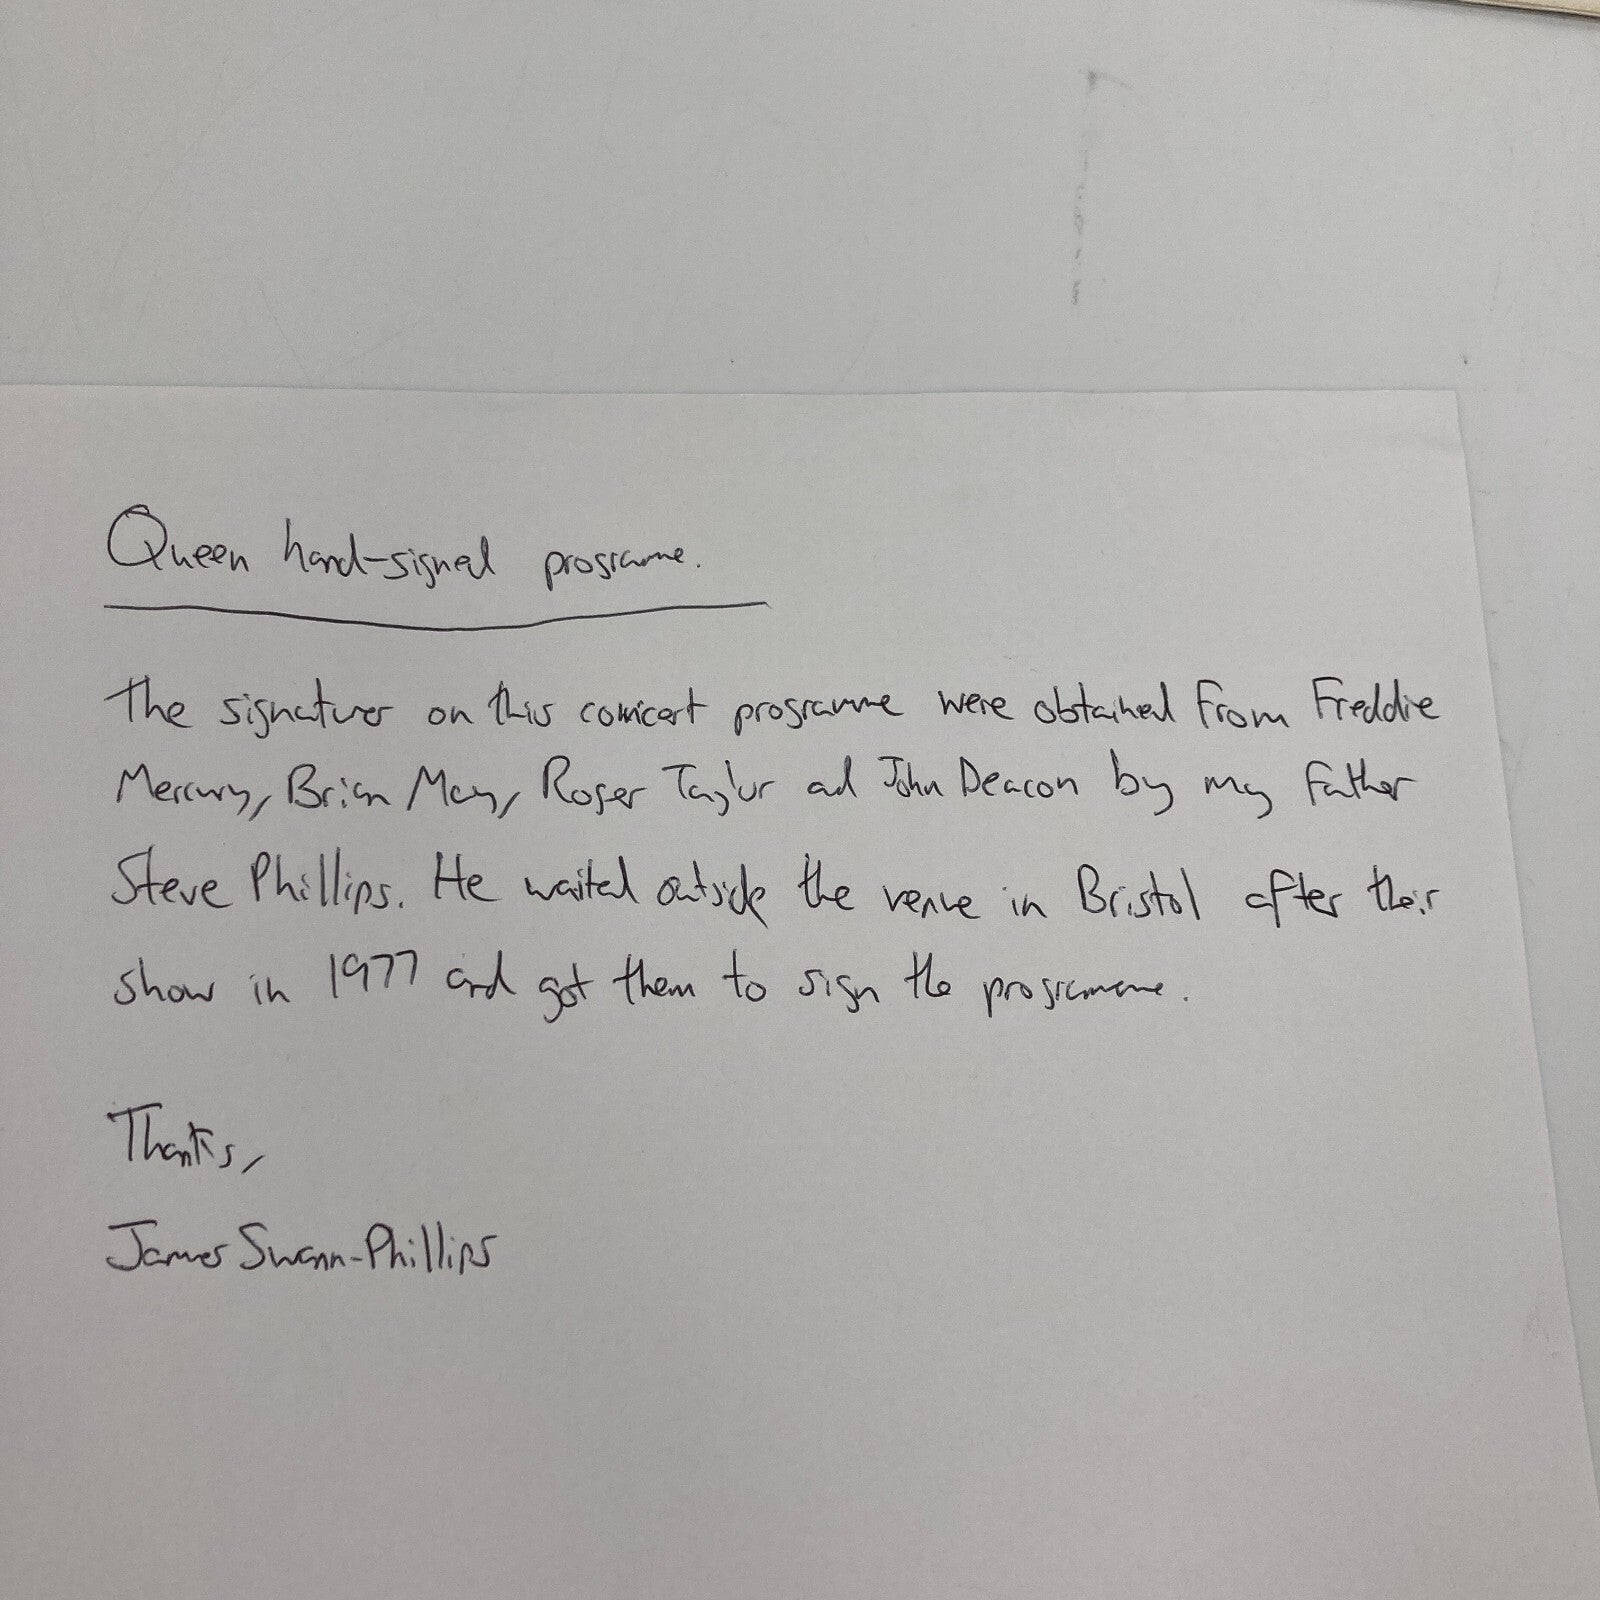 Queen hand-signed programme.
The signatures on this concert programme were obtained from Freddie
Mercury, Brian May, Roger Taylor ad John Deacon by my father
Steve Phillips. He waited outside the venue in Bristol after their
show in 1977 and got them to sign the programme.
Thanks,
James Swann-Phillips